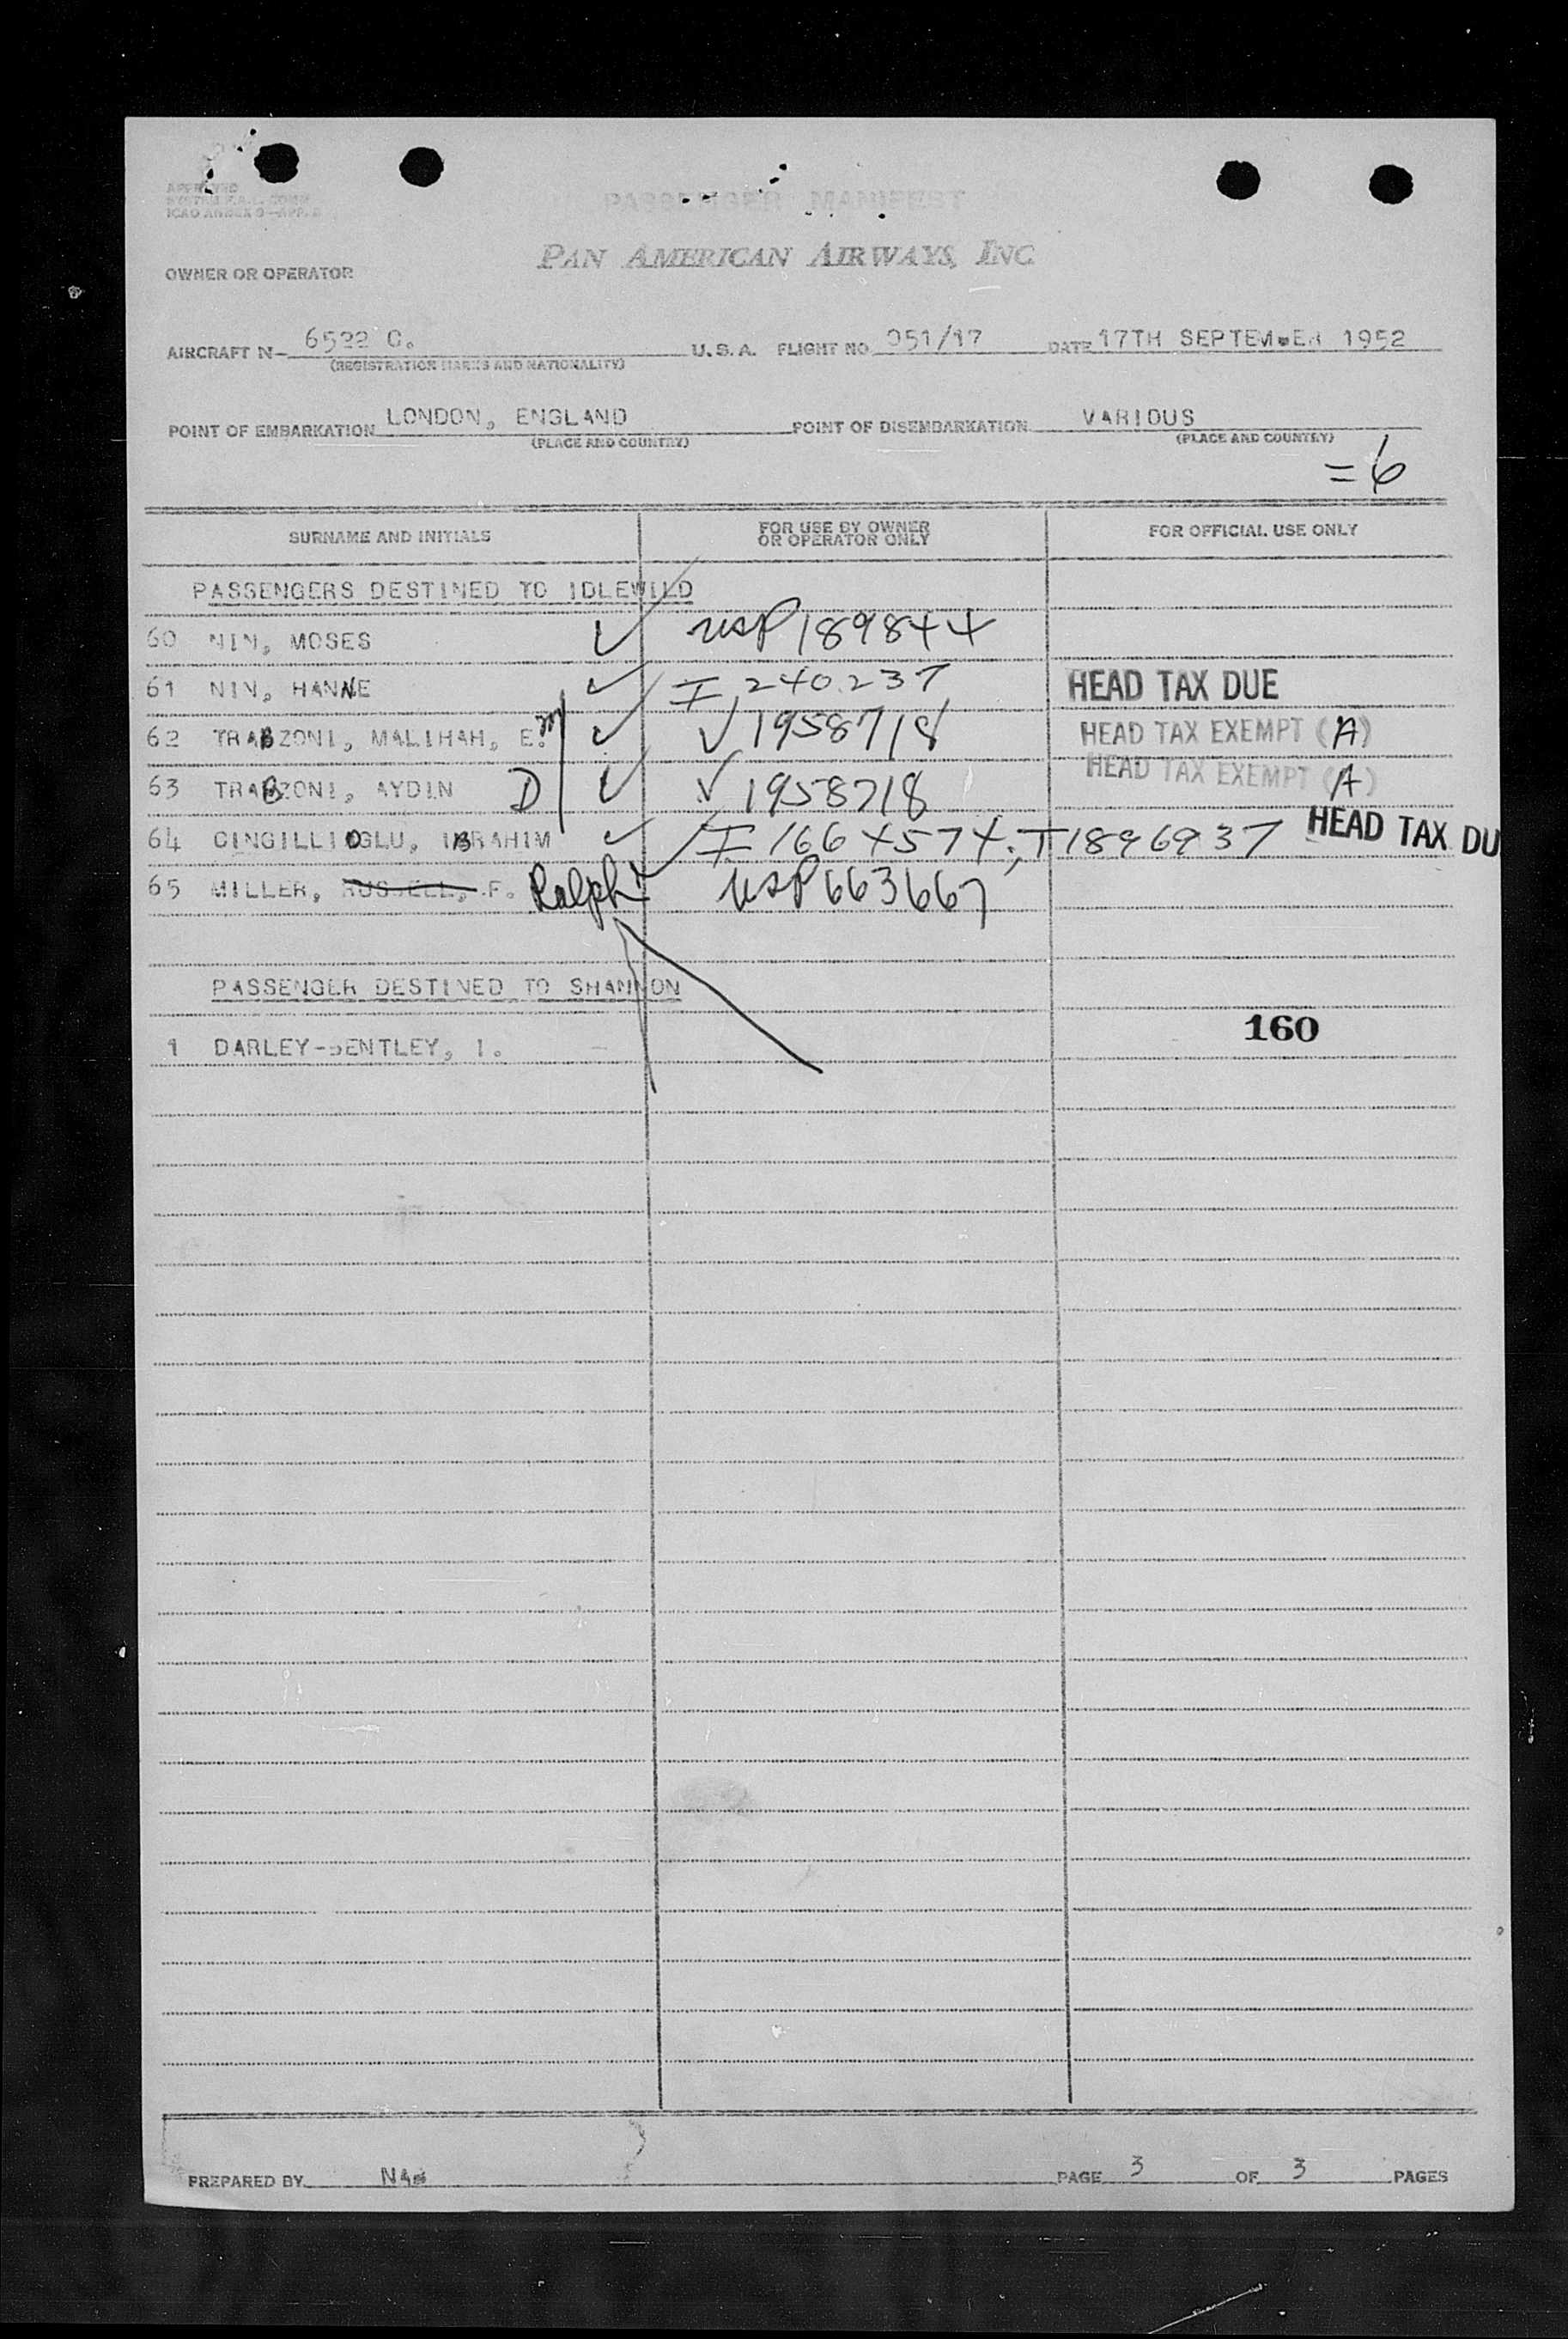 APPROVED
SYSTEM F.A.L. COMM
ICAO ANNEX 9-APP. 2
PASSENGER MANIFEST
PAN AMERICAN AIRWAYS, INC.
OWNER OR OPERATOR
AIRCRAFT N- 6522 C. U.S.A. FLIGHT NO. 051/17 DATE 17TH SEPTEMBER 1952
(REGISTRATION MARKS AND NATIONALITY)
POINT OF EMBARKATION LONDON, ENGLAND POINT OF DISEMBARKATION VARIOUS
(PLACE AND COUNTRY) (PLACE AND COUNTRY)
=6
SURNAME AND INITIALS FOR USE BY OWNER OR OPERATOR ONLY FOR OFFICIAL USE ONLY
PASSENGERS DESTINED TO IDLEWILD
60 NIN, MOSES ✓ USP 189844
61 NIN, HANNE ✓ I 240237 HEAD TAX DUE
62 TRABZONI, MALIHAH, E. M ✓ V 1958718 HEAD TAX EXEMPT (A)
63 TRABZONI, AYDIN D ✓ V 1958718 HEAD TAX EXEMPT (A)
64 CINGILLIOGLU, IBRAHIM ✓ I 1664574; T 1896937 HEAD TAX DU
65 MILLER, RUSSELL, F. Ralph ✓ USP 663667
PASSENGER DESTINED TO SHANNON
160
1 DARLEY-BENTLEY, I.
PREPARED BY PAGE 3 OF 3 PAGES